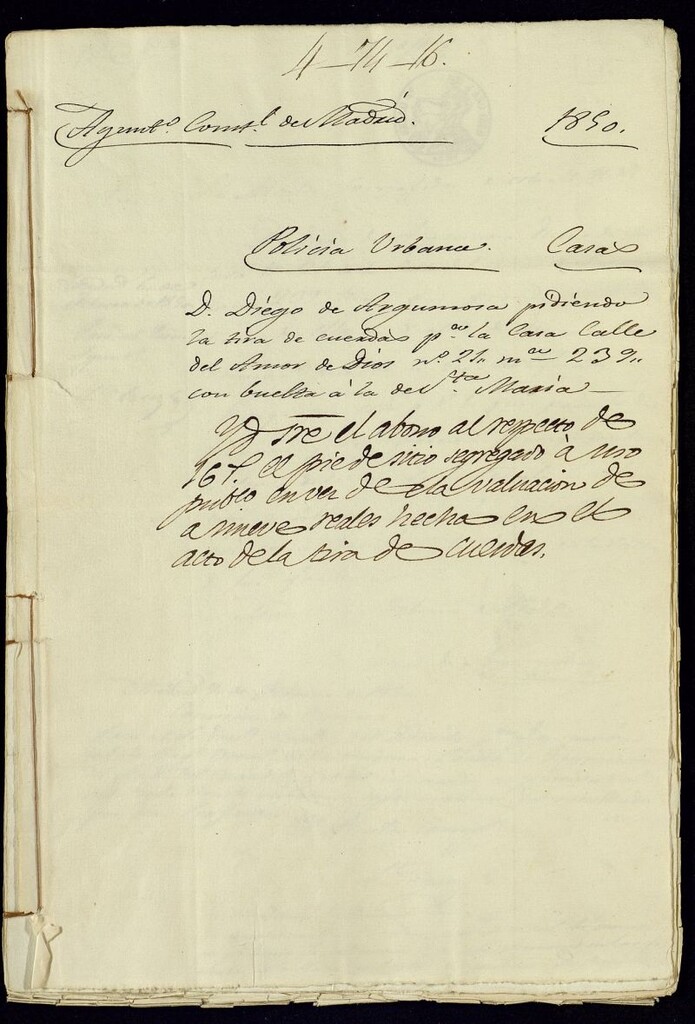 4-74-16.
Ayunt.º Const.l de Madrid. 1850.
Policia Urbana. Casas
D. Diego de Argumosa pidiendo
la tira de cuerdas p.ª la Casa Calle
del Amor de Dios nº 21. m.na 239.
con buelta á la de S.ta Maria
Yd sre el abono al respecto de
16 el pie de sitio segregado à uso
publo en vez de la valuacion de
a nueve reales hecha en el
acto de la tira de cuerdas.